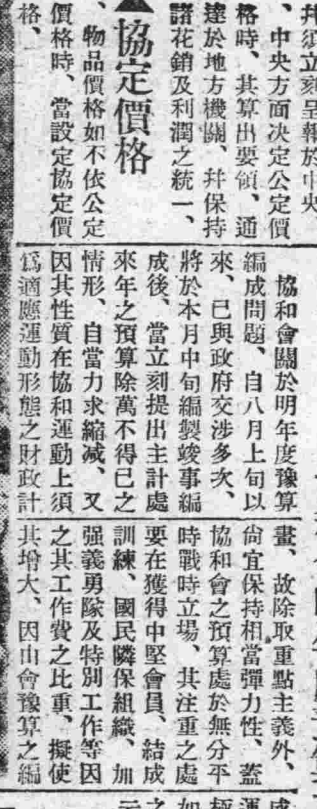 并須立刻呈報於中央
、中央方面決定公定價
格時、其算出要領、通
達於地方機關、并保持
諸花銷及利潤之統一、
▲協定價格
、物品價格如不依公定
價格時、當設定協定價
格、
協和會關於明年度豫算
編成問題、自八月上旬以
來、已與政府交涉多次、
將於本月中旬編製竣事編
成後、當立刻提出主計處
來年之預算除萬不得已之
情形、自當力求縮減、又
因其性質在協和運動上須
爲適應運動形態之財政計
畫、故除取重點主義外、
尙宜保持相當彈力性、蓋
協和會之預算處於無分平
時戰時立場、其注重之處
要在獲得中堅會員、結成
訓練、國民隣保組織、加
强義勇隊及特別工作等因
之其工作費之比重、擬使
其增大、因由會豫算之編